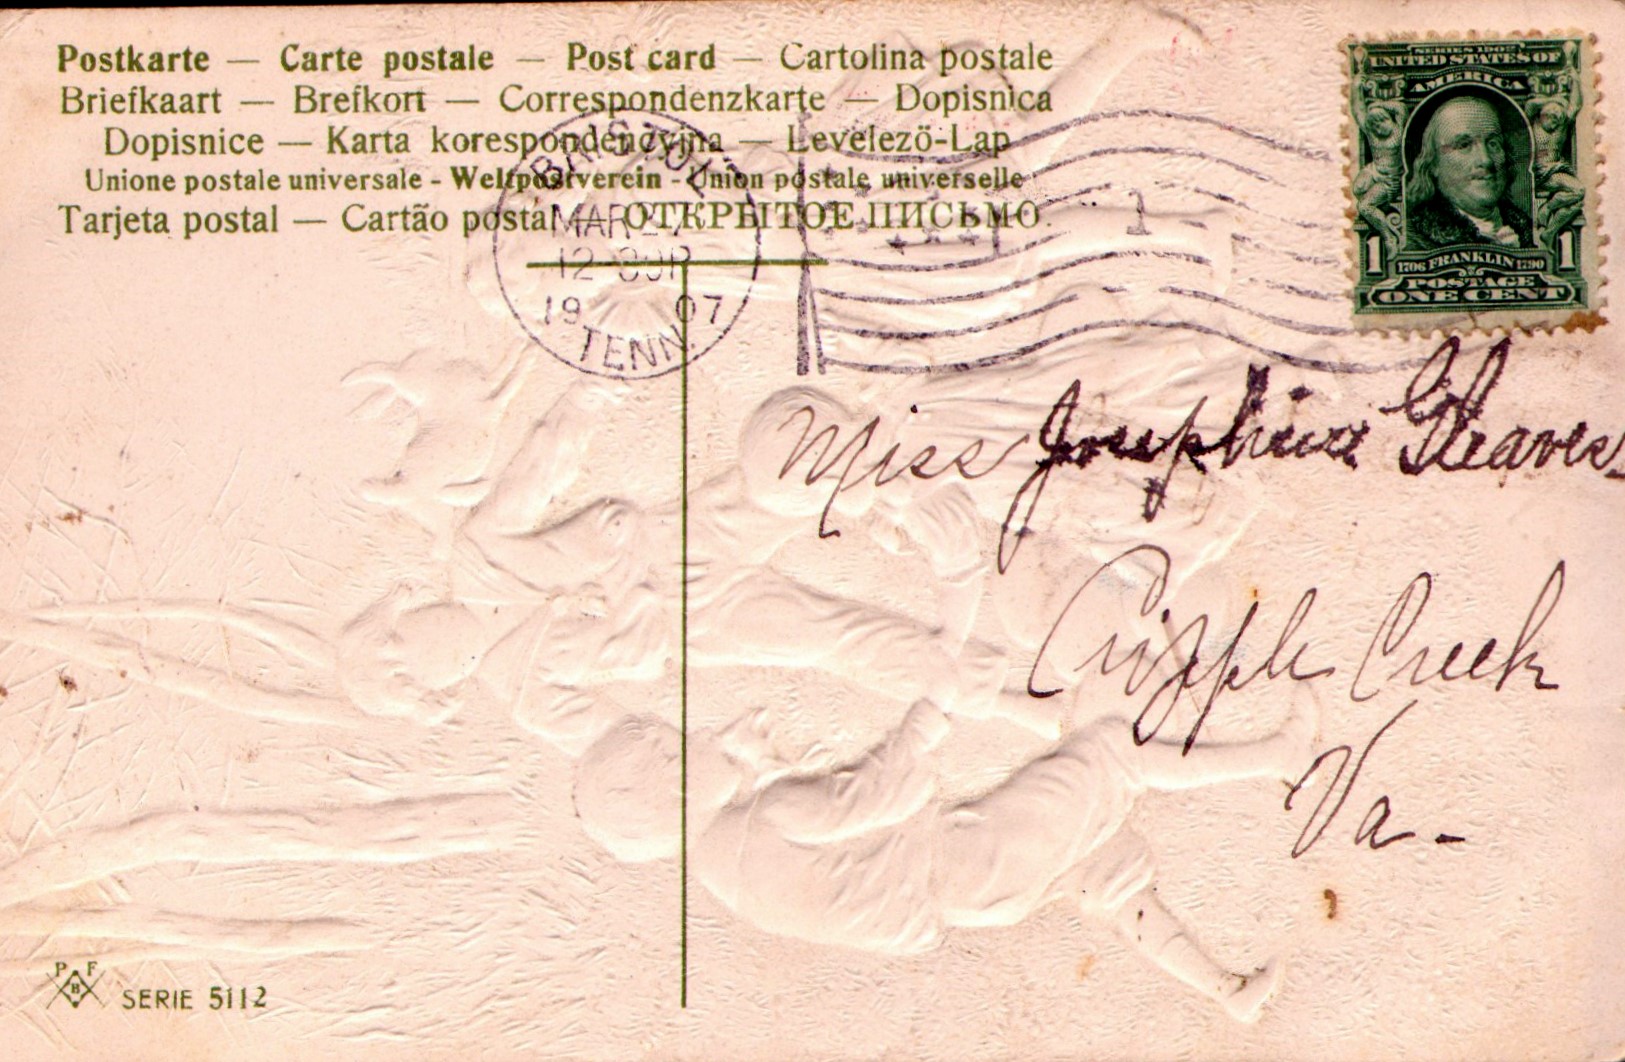 Postkarte — Carte postale — Post card — Cartolina postale
Briefkaart — Brefkort — Correspondenzkarte — Dopisnica
Dopisnice — Karta korespondencyjna — Levelezö-Lap
Unione postale universale - Weltpostverein - Union postale universelle
Tarjeta postal — Cartão postal — ОТКРЫТОЕ ПИСЬМО.
BRISTOL
MAR 27
12 30P
19 07
TENN.
1
SERIES 1902
UNITED STATES OF
AMERICA
1 1
1706 FRANKLIN 1790
POSTAGE
ONE CENT
Miss Josephine Gleaves
Cripple Creek
Va -
P F
B
SERIE 5112